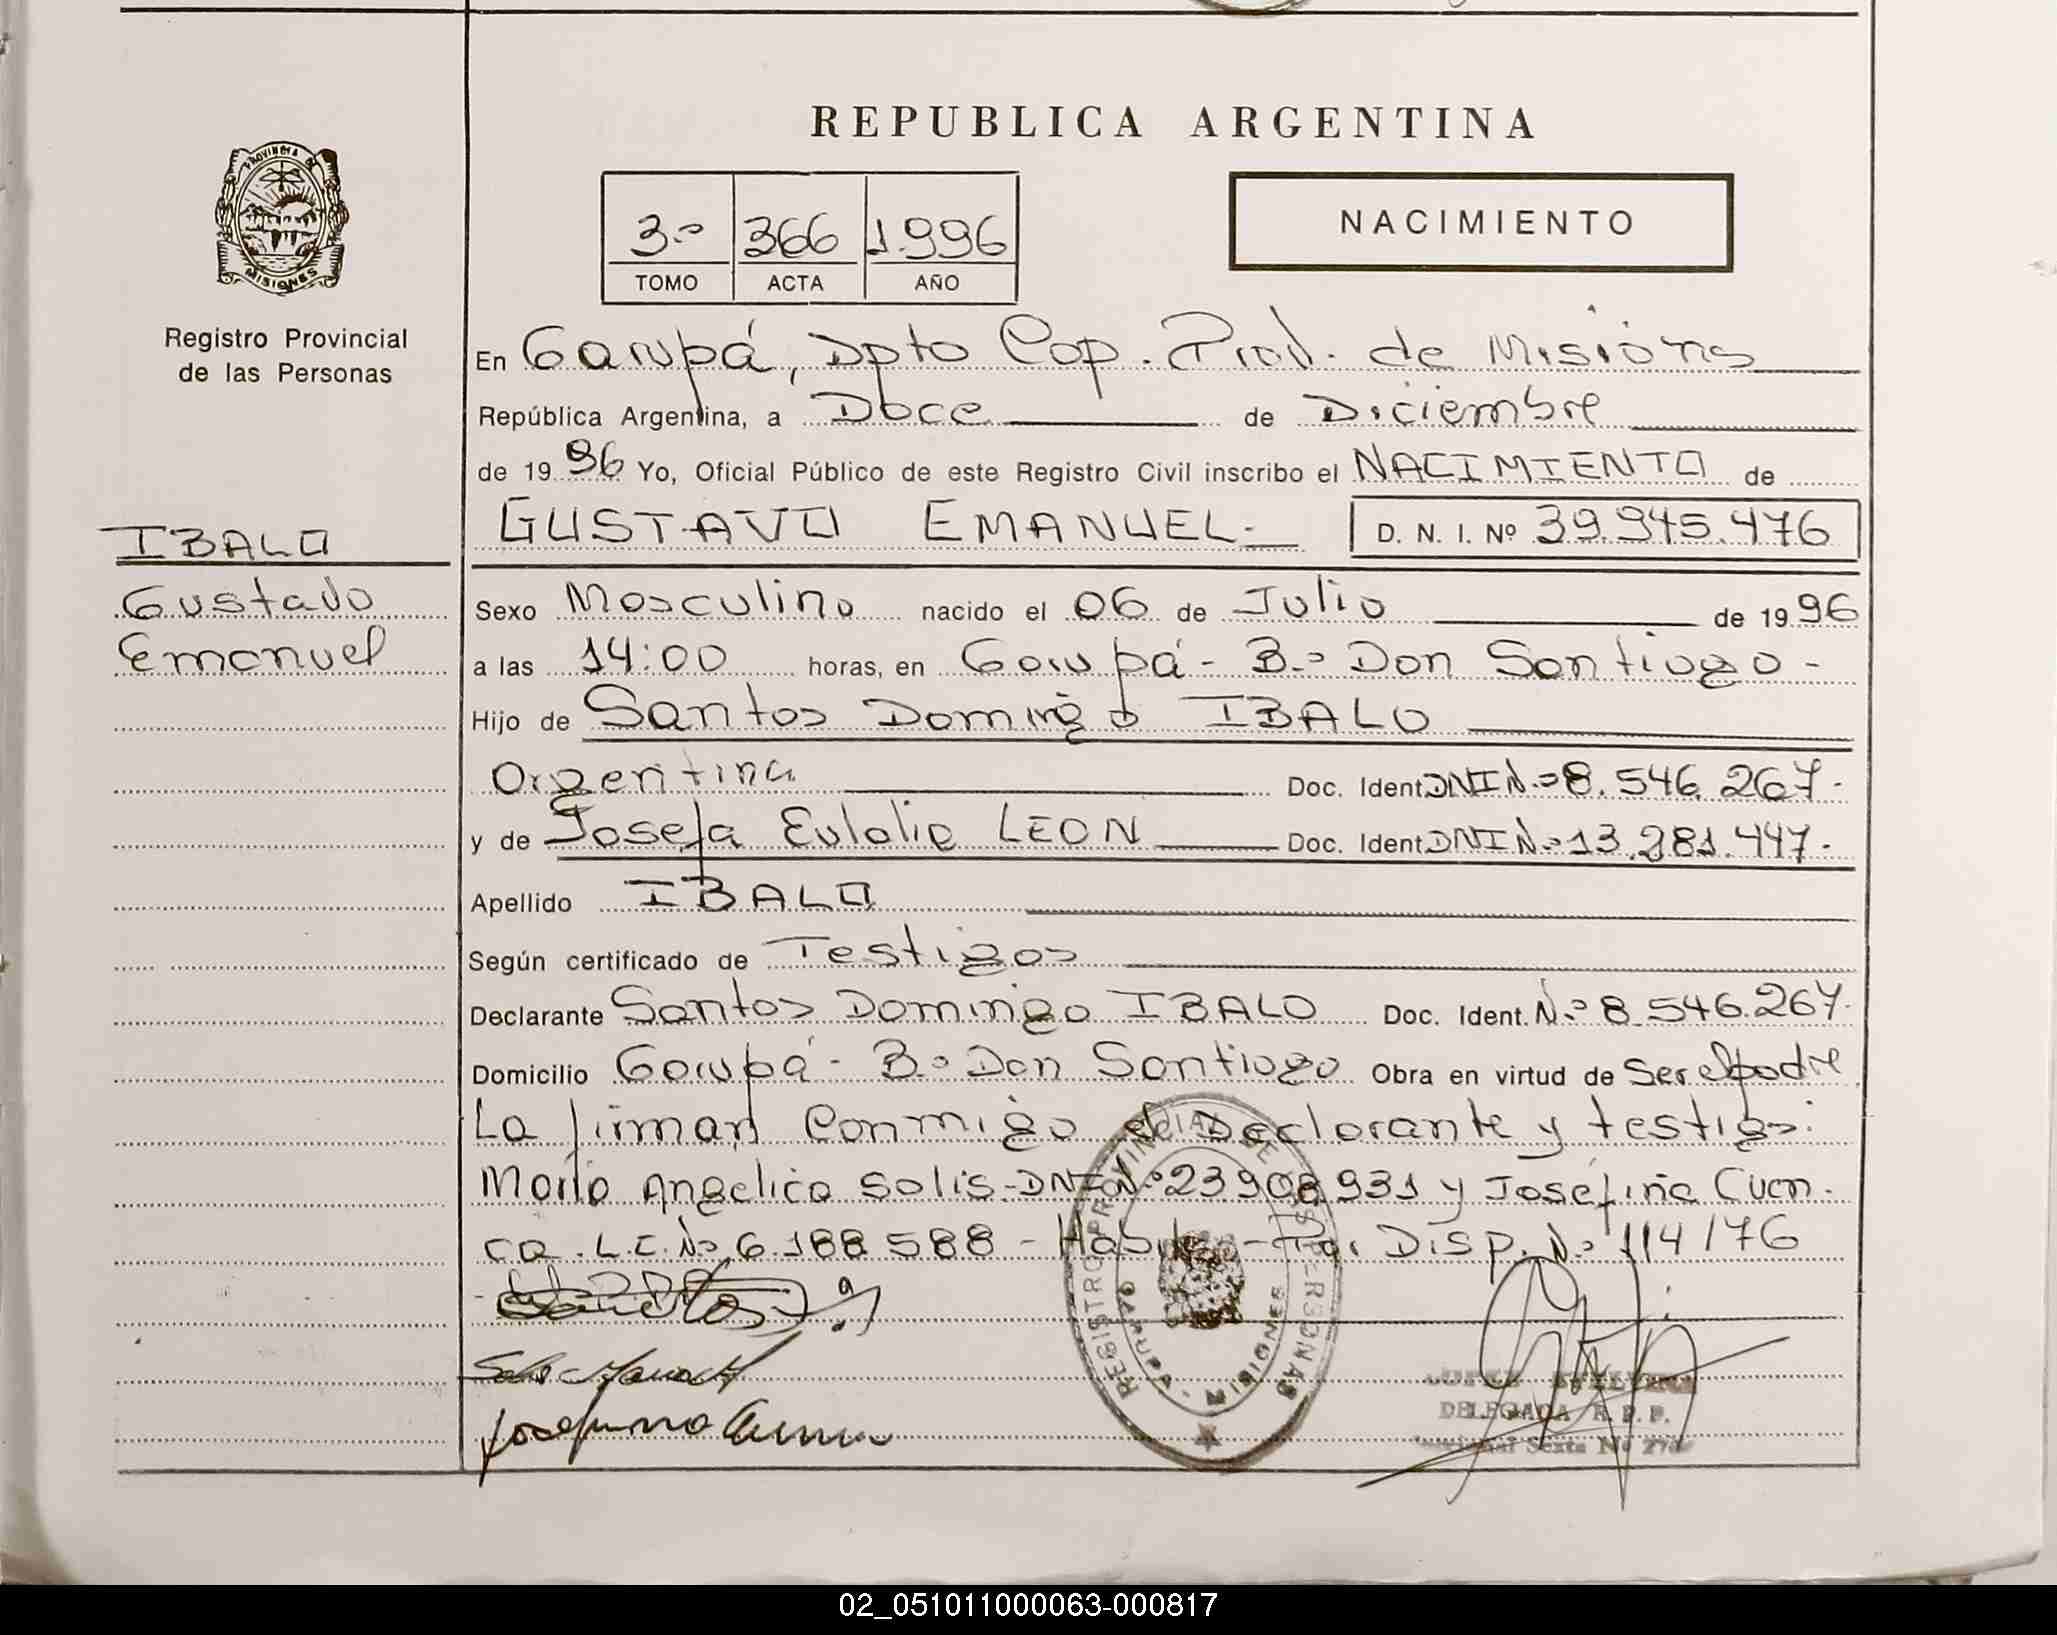 REPUBLICA ARGENTINA
PROVINCIA DE
MISIONES
Registro Provincial
de las Personas
3º 366 1.996
TOMO ACTA AÑO
NACIMIENTO
En Garupá, Dpto Cap. Prov. de Misiones
República Argentina, a Doce de Diciembre
de 1996 Yo, Oficial Público de este Registro Civil inscribo el NACIMIENTO de
GUSTAVO EMANUEL.- D. N. I. Nº 39.945.476
IBALO
Gustavo
Emanuel
Sexo Masculino nacido el 06 de Julio de 1996
a las 14:00 horas, en Garupá - Bº Don Santiago -
Hijo de Santos Domingo IBALO
Argentina Doc. Ident DNI Nº 8.546.267.
y de Josefa Eulalia LEON Doc. Ident DNI Nº 13.281.447.
Apellido IBALO
Según certificado de Testigos
Declarante Santos Domingo IBALO Doc. Ident. Nº 8.546.267.
Domicilio Garupá - Bº Don Santiago Obra en virtud de Ser el padre
La firman conmigo el Declarante y testigo:
Maria Angelica Solis - DNI Nº 23.908.931 y Josefina Cuen-
ca. L.C. Nº 6.188.588 - Por Disp. Nº 114/76
REGISTRO PROVINCIAL DE LAS PERSONAS
GARUPA - MISIONES
DELEGADA R. P. P.
02_051011000063-000817